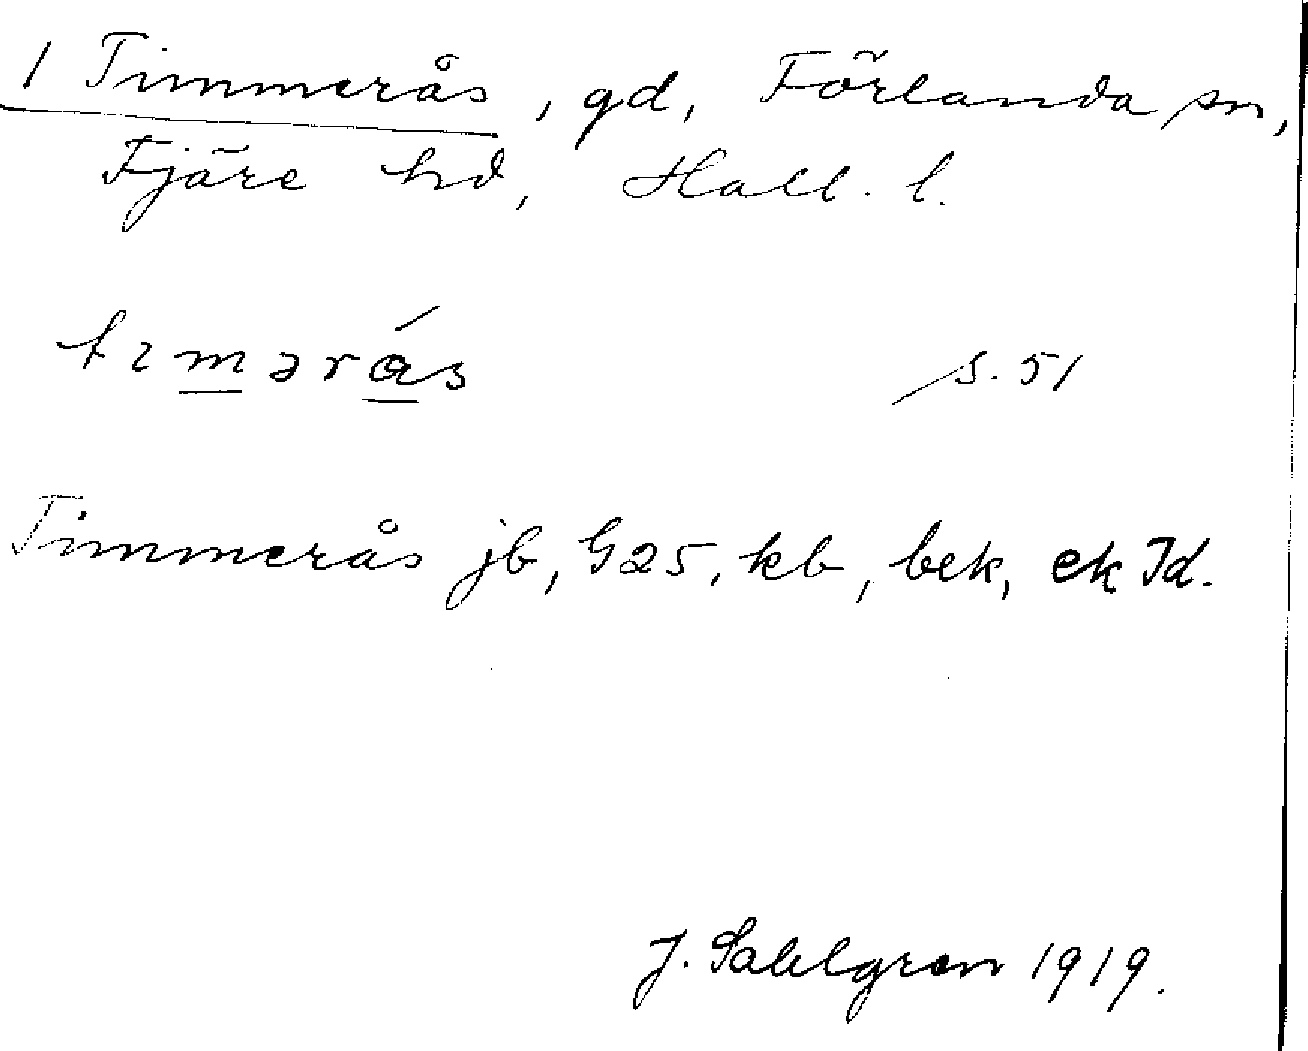 1 Timmerås, gd, Förlanda sn,
Fjäre hd, Hall. l.
tımərás s. 51
Timmerås jb, G25, kb, bek, ek Id.
J. Sahlgren 1919.